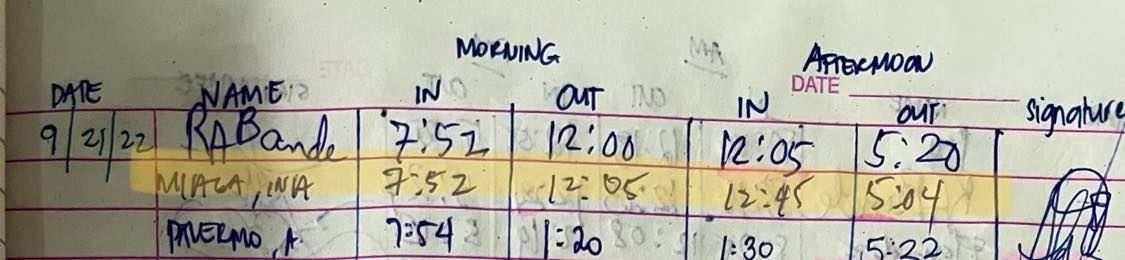 MORNING AFTERMOON
DATE
DATE NAME IN OUT IN OUT signature
9/21/22 RABande 7:52 12:00 12:05 5:20
7:52 12:05 12:45 5:04
PALERMO, A 7:54 1:20 1:30 5:22